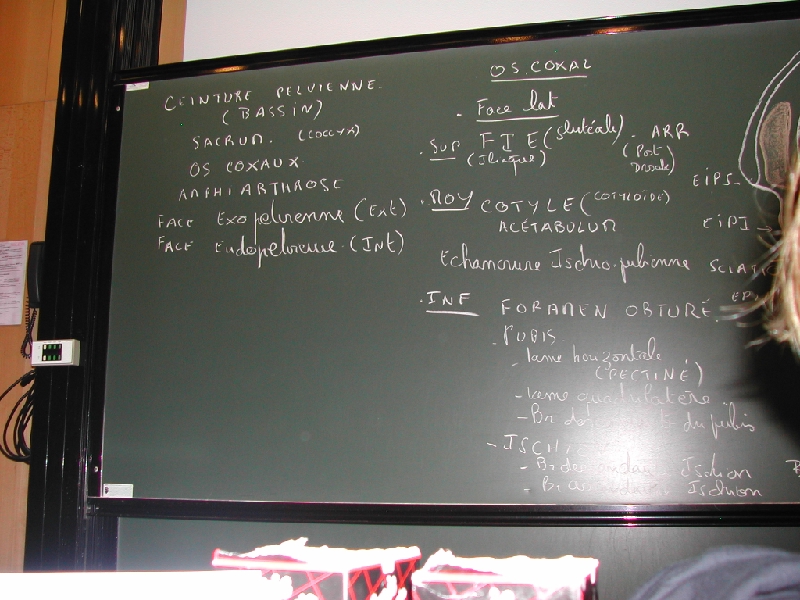 CEINTURE PELVIENNE.
(BASSIN)
SACRUM. (COCCYX)
OS COXAUX
AMPHIARTHROSE
FACE Exopelvienne (Ext)
FACE Endopelvienne (Int)
OS COXAL
. Face lat
. SUP FIE (glutéale) . ARR
(Iliaque) (Post
Dorsale)
EIPS
. MOY COTYLE (COTYLOÏDE)
ACÉTABULUM
EIPI →
Echancrure Ischio-pubienne
. INF FORAMEN OBTURÉ.
. PUBIS
- lame horizontale
(PECTINÉ)
- lame quadrilatère
- Br du pubis
- ISCH
- Br Ischion
- Br Ischion